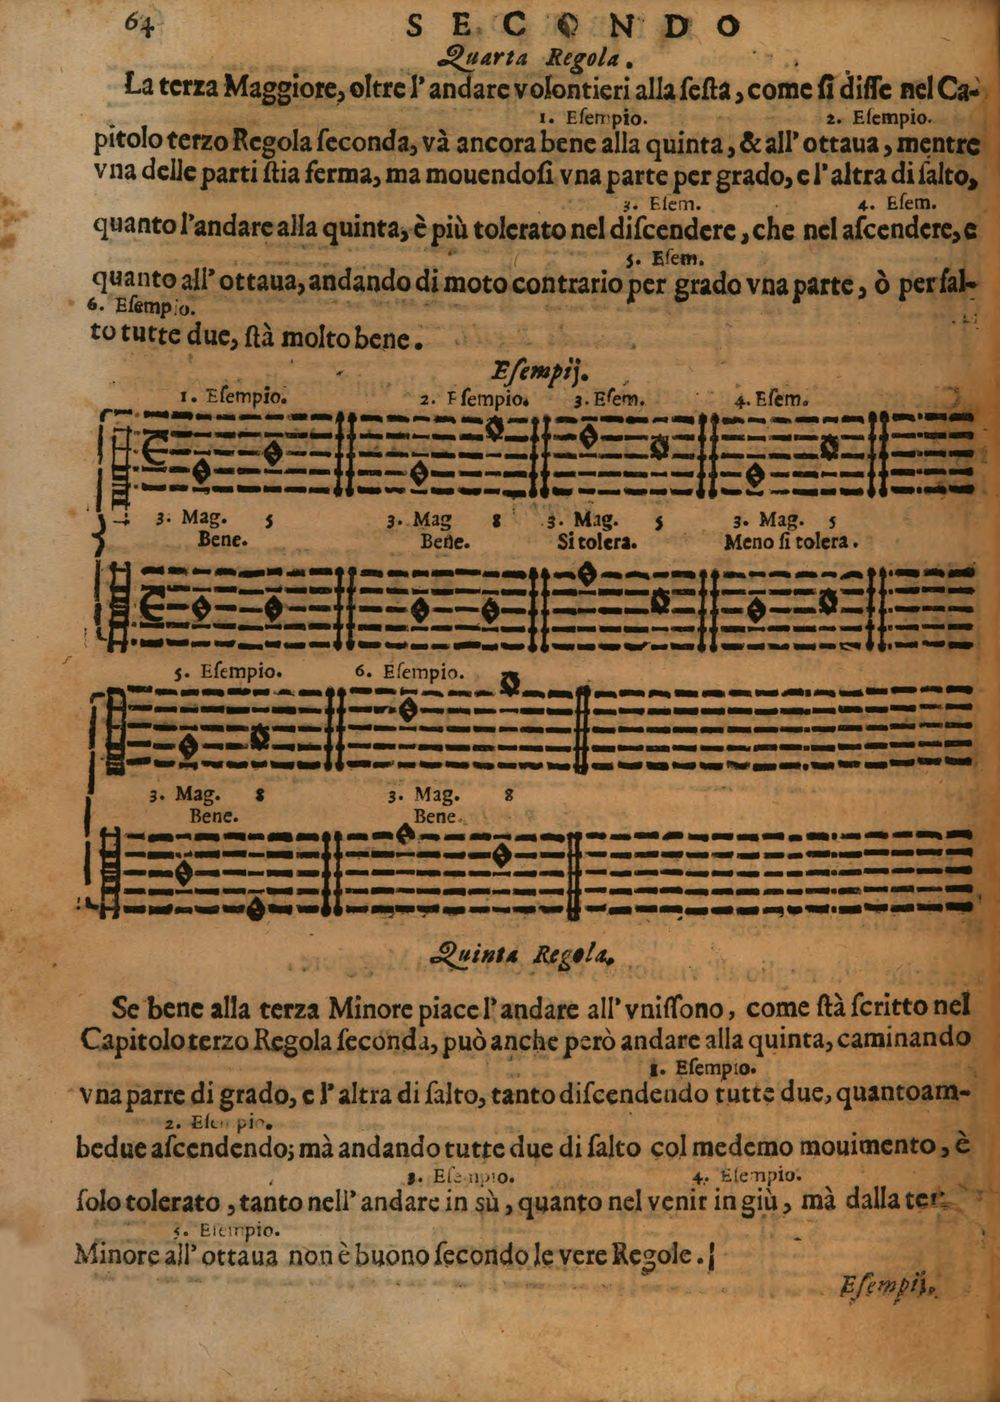 64 SECONDO
Quarta Regola.
La terza Maggiore, oltre l' andare volontieri alla ſeſta, come ſi diſſe nel Ca-
1. Eſempio. 2. Eſempio.
pitolo terzo Regola ſeconda, và ancora bene alla quinta, & all' ottaua, mentre
vna delle parti ſtia ferma, ma mouendoſi vna parte per grado, e l' altra di ſalto,
3. Eſem. 4. Eſem.
quanto l'andare alla quinta, è più tolerato nel diſcendere, che nel aſcendere, e
5. Eſem.
quanto all' ottaua, andando di moto contrario per grado vna parte, ò per ſal-
6. Eſempio.
to tutte due, ſtà molto bene.
Eſempij.
1. Eſempio. 2. Eſempio. 3. Eſem. 4. Eſem.
3. Mag. 5 3. Mag 8 3. Mag. 5 3. Mag. 5
Bene. Bene. Si tolera. Meno ſi tolera.
5. Eſempio. 6. Eſempio.
3. Mag. 8 3. Mag. 8
Bene. Bene.
Quinta Regola.
Se bene alla terza Minore piace l' andare all' vniſſono, come ſtà ſcritto nel
Capitolo terzo Regola ſeconda, può anche però andare alla quinta, caminando
1. Eſempio.
vna parre di grado, e l' altra di ſalto, tanto diſcendendo tutte due, quanto am-
2. Eſempio.
bedue aſcendendo; mà andando tutte due di ſalto col medemo mouimento, è
3. Eſempio. 4. Eſempio.
ſolo tolerato, tanto nell' andare in sù, quanto nel venir in giù, mà dalla ter.
5. Eſempio.
Minore all' ottaua non è buono ſecondo le vere Regole.
Eſempij.